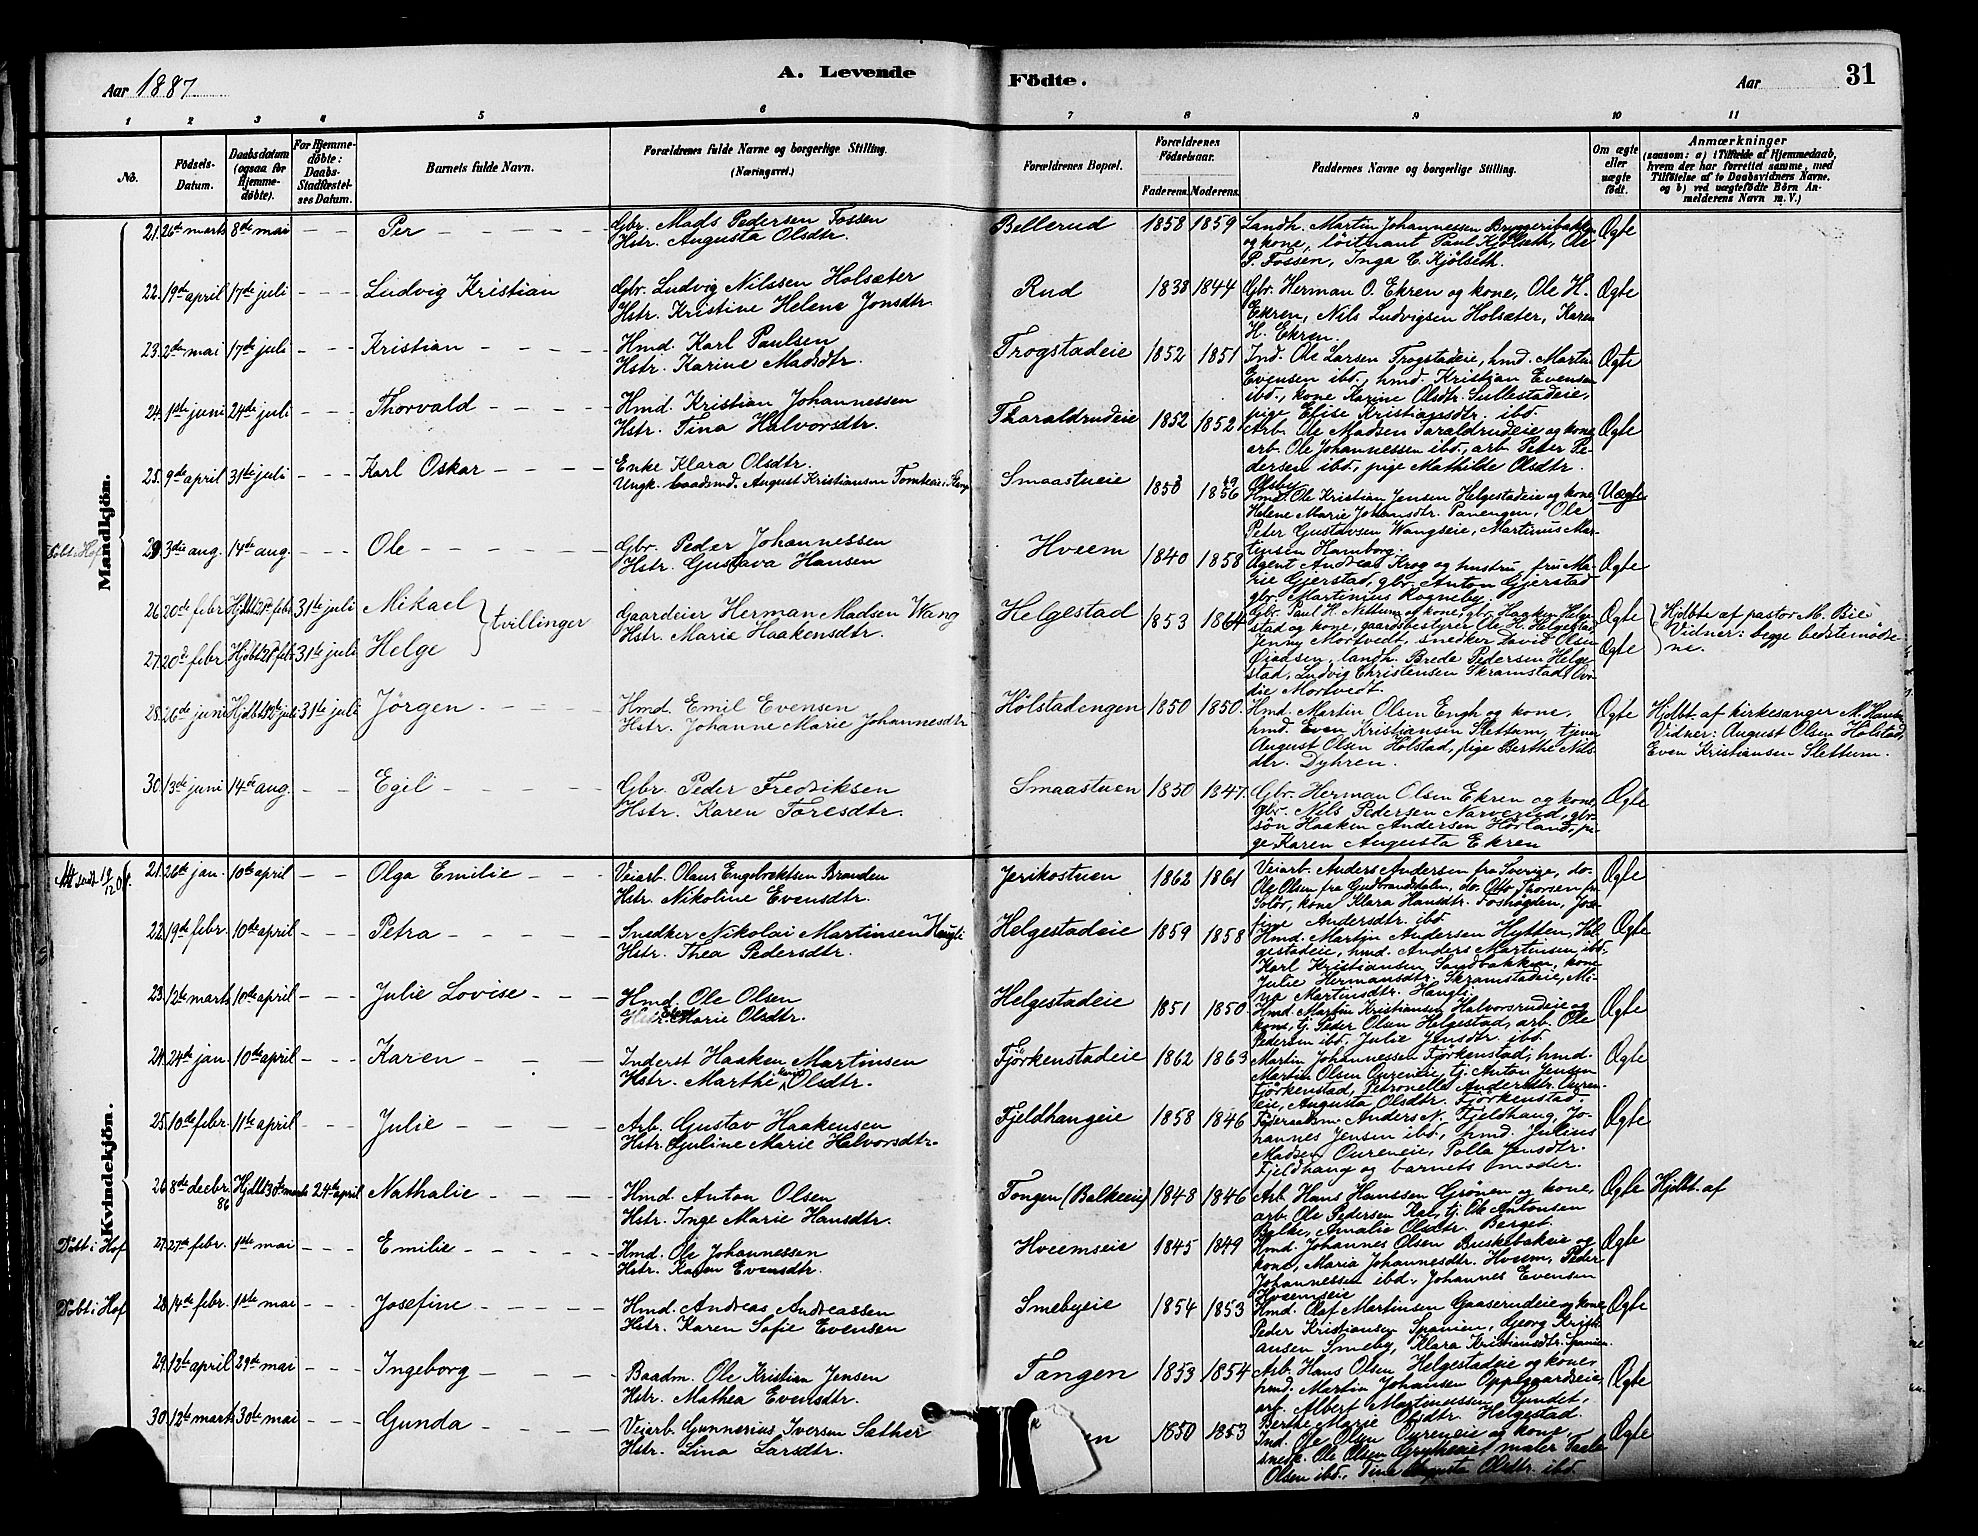 Aar 1887. A. Levende Födte. Aar 31
1 2 3 4 5 6 7 8 9 10 11
No. Födsels-Datum. Daabsdatum (ogsaa for Hjemmedöbte). For Hjemmedöbte: Daabs-Stadfæstelses Datum. Barnets fulde Navn. Forældrenes fulde Navne og borgerlige Stilling. (Næringsvei.) Forældrenes Bopæl. Forældrenes Födselsaar. Faderens. Moderens. Faddernes Navne og borgerlige Stilling. Om ægte eller uægte födt. Anmærkninger (saasom: a) i Tilfælde af Hjemmedaab, hvem der har forrettet samme, med Tilföielse af to Daabsvidners Navne, og b) ved uægtefödte Börn Anmelderens Navn m. V.)
Mandkjön.
21. 26de marts 8de mai - - Per - - - Gbr. Mads Pedersen Fossen Bellerud 1858 1859 Landh. Martin Johannessen Bryggeribakken Ægte
Hstr. Augusta Olsdtr. og kone, löitnant Paul Kjölseth, Ole
P. Fossen, Inga C. Kjölseth.
22. 19de april 17de juli - - - Ludvig Kristian Gbr. Ludvig Nilssen Holsæter Rud 1838 1844 Gbr. Herman O. Ekren og kone, Ole H. Ægte
Hstr. Kristine Helene Jonsdtr. Ekren, Nils Ludvigsen Holsæter, Karen
H. Ekren.
23. 2de mai 17de juli - - - Kristian - - - - Hmd. Karl Paulsen Trogstadeie 1852 1851 Ind. Ole Larsen Trogstadeie, hmd. Martin Ægte
Hstr. Karine Madsdtr. Evensen ibd., hmd. Kristian Evensen
ibd., kone Karine Olsdtr. Sullestadeie,
pige Elise Kristiansdtr. ibd.
24. 1ste juni 24de juli - - - Thorvald - - - - Hmd. Kristian Johannessen Tharaldrudeie 1852 1852 Arb. Ole Madsen Taraldrudeie og kone, Ægte
Hstr. Tina Halvorsdtr. arb. Ole Johannessen ibd., arb. Peder Pe-
dersen ibd., pige Mathilde Olsdtr.
Olsby.
25. 9de april 31te juli - - - Karl Oskar - - - Enke Klara Olsdtr. Smaastueie 1853 1856 Hmd. Ole Kristian Jensen Helgestadeie og kone, Uægte
Ungk. baadsmd. August Kristiansen Helene Marie Johansdtr. Panengen, Ole
Peter Gustavsen Wangseie, Martinus Mar-
tinsen Hamborg.
Döbt i Hof 29 3die aug. 14de aug. - - - Ole - - - - - Gbr. Peder Johannessen Hveem 1840 1858 Agent Andreas Krog og hustru, fru Ma- Ægte
Hstr. Gustava Hansen rie Gjerstad, gbr. Anton Gjerstad
gbr. Martinius Rogneby.
26. 20de febr. Hjdbt 21de febr. 31te juli Mikael } tvillinger Gaardeier Herman Madsen Wang Helgestad 1853 1864 Gbr. Paul H. Nettum og kone, gbr. Haaken Helge- Ægte Hjdbte af pastor M. Bie
Hstr. Marie Haakensdtr. stad og kone, gaardsbestyrer Ole H. Helgestad, Vidner: begge bedstemödre-
27. 20de febr. Hjdbt 21de febr. 31te juli Helge Jenny Mortvedt, snedker David Olsen Ægte ne.
landh. Brede Pedersen Helge-
stad, Ludvig Christensen Skramstad,
Mortvedt.
28. 26de juni Hjdbt juli 31te juli Jörgen - - - - Hmd. Emil Evensen Hölstadengen 1850 1850. Hmd. Martin Olsen Engh og kone, Ægte Hjdbt. af kirkesanger M.
Hstr. Johanne Marie Johannesdtr hmd. Even Kristiansen Slettum, tjener Vidner: August Olsen Hölstad,
August Olsen Hölstad, pige Berthe Nils- Even Kristiansen Slettum.
dtr. Dyhren.
30. 13de juni 14de aug. - - Egil - - - - Gbr. Peder Fredriksen Smaastuen 1850 1847. Gbr. Herman Olsen Ekren og kone, Ægte
Hstr. Karen Toresdtr. gbr. Nils Pedersen Narverud, gbr-
sön Haaken Andersen Hörland, pi-
ge Karen Augusta Ekren
Kvindekjön.
Att. sendt 19/120. 21. 26de jan. 10de april - - Olga Emilie - - - Veiarb. Olaus Engebrektsen Braaden Jerikostuen 1862 1861 Veiarb. Anders Andersen fra Sverige, do. Ægte
Hstr. Nikoline Evensdtr. Ole Olsen fra Gudbrandsdalen, do. Otto Thorsen fra
Solör, kone Klara Hansdtr. Foshogden, Jose-
fine Andersdtr. ibd.
22. 19de febr. 10de april - - - Petra - - - - Snedker Nikolai Martinsen Haugli Helgestadeie 1859 1858 Hmd. Martin Andersen Hytten, Hel- Ægte
Hstr. Thea Pedersdtr. gestadeie, hmd. Anders Martinsen ibd.
Karl Kristiansen Sandbakken, kone
Julie Hermansdtr. Skramstadeie, Mi-
na Martinsdtr. Haugli.
23. 12te marts 10de april - - - Julie Lovise - - - Hmd. Ole Olsen Helgestadeie 1851 1850 Hmd. Martin Kristiansen Halvorsrudeie og Ægte
Marie Olsdtr. kone, tj. Peder Olsen Helgestad, arb. Ole
Pedersen ibd. Julie Jensdtr. ibd.
24. 24de jan. 10de april - - - Karen - - - Inderst Haaken Martinsen Fjörkenstadeie 1862 1863 Martin Johannessen Fjörkenstad, hmd. Ægte
Hstr. Marthe Karine Olsdtr. Martin Olsen Oureneie, tj. Anton Jensen
Fjörkenstad, Petronelle Andersdtr. Ouren-
eie, Augusta Olsdtr. Fjörkenstad.
25. 10de febr. 11te april - - - Julie - - - - Arb. Gustav Haakensen Fjeldhangeie 1858 1846 Föderaadsm. Anders N. Fjeldhang, Jo- Ægte
Hstr. Guline Marie Halvorsdtr. hannes Jensen ibd., hmd. Julius
Madsen Oureneie, Polla Jensdtr.
Fjeldhang og barnets moder.
26. 8de decbr. 86 Hjdbt 30te marts 24de april Nathalie - - - Hmd. Anton Olsen Tongen (Balkeeie) 1848 1846 Arb. Hans Hanssen Grönen og kone, Ægte Hjdbt. af
Hstr. Inge Marie Hansdtr. arb. Ole Pedersen Kal, tj. Ole Antonsen
Balke, Amalie Olsdtr. Berget.
Döbt i Hof 27. 27de febr. 1ste mai - - - Emilie - - - - Hmd. Ole Johannessen Hveemseie 1845 1849 Hmd. Johannes Olsen Buskebakeie og Ægte
Hstr. Karen Evensdtr. kone, Maria Johannesdtr. Hveem, Peder
Johannessen ibd., Johannes Evensen
Hveemseie
Döbt i Hof 28. 14de febr. 1ste mai - - - Josefine - - - - Hmd. Andreas Andreassen Smebyeie 1854 1853 Hmd. Olaf Martinsen Gaaserudeie og kone, Ægte
Hstr. Karen Sofie Evensen Peder Kristiansen Spanien, Georg Kristi-
ansen Smeby, Klara Kristiansdtr. Spanien.
29. 12te april 29de mai - - - Ingeborg - - - Baadm. Ole Kristian Jensen Tangen 1853 1854 Arb. Hans Olsen Helgestadeie og kone, Ægte
Hstr. Mathea Evensdtr. hmd. Martin Johansen Oppegaardseie,
arb. Albert Martinessen Gundet,
Berthe Marie Olsdtr. Helgestad.
30. 12te marts 30de mai - - - Gunda - - - - Veiarb. Gunnerius Iversen Sæther 1850 1853 Ind. Ole Olsen Oureneie og kone, Ægte
Hstr. Lina Larsdtr. snedk. Ole Olsen maler
Olsen ibd., Tina Augusta Olsdtr. ibd.